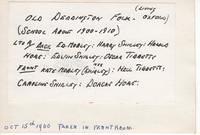 OLD DEDDINGTON FOLK - OXFORD)
(SCHOOL ABOUT 1900-1910)
L to R BACK ED. MOBLEY: HARRY SHIRLEY: HAROLD
HOARE: EDWIN SHIRLEY: OSCAR TIBBETT:
FRONT KATE MOBLEY (NEE SHIRLEY): NELL TIBBETT:
CAROLINE SHIRLEY: DORCAS HOARE:
OCT 15th 1960 TAKEN IN FRONT ROOM.